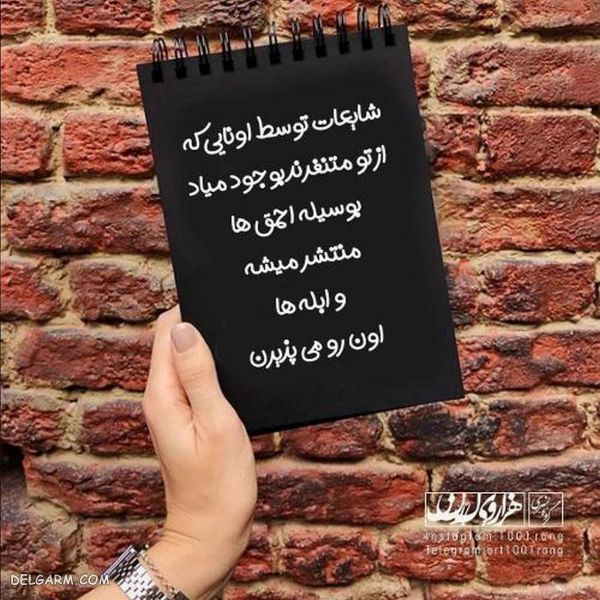 شایعات توسط اونایی که
از تو متنفرند بوجود میاد
بوسیله احمق ها
منتشر میشه
و ابله ها
اون رو می پذیرن
هزار و یک رنگ
instagram 1001rang
telegram art1001rang
DELGARM.COM